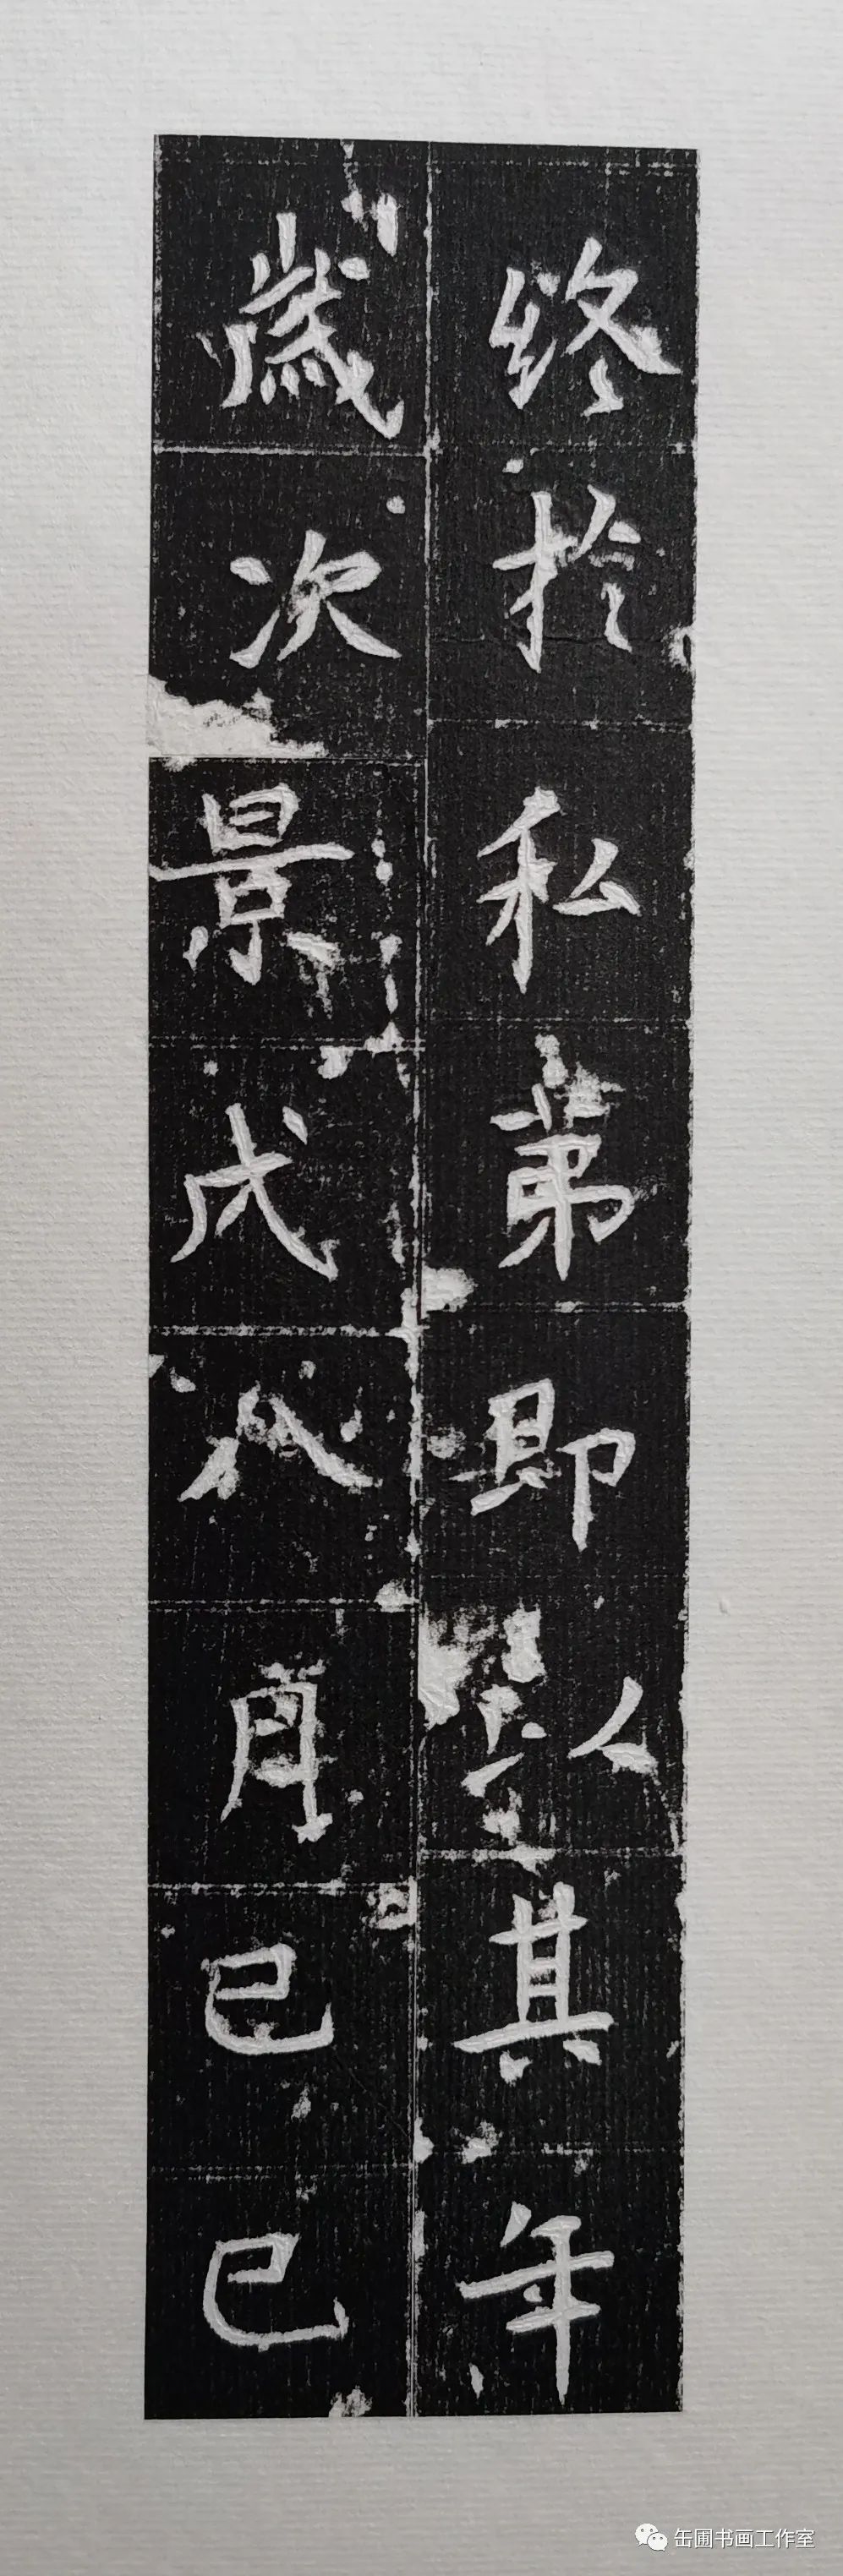 终於私苐即以其年
歲次景戌八月己巳
缶圃书画工作室